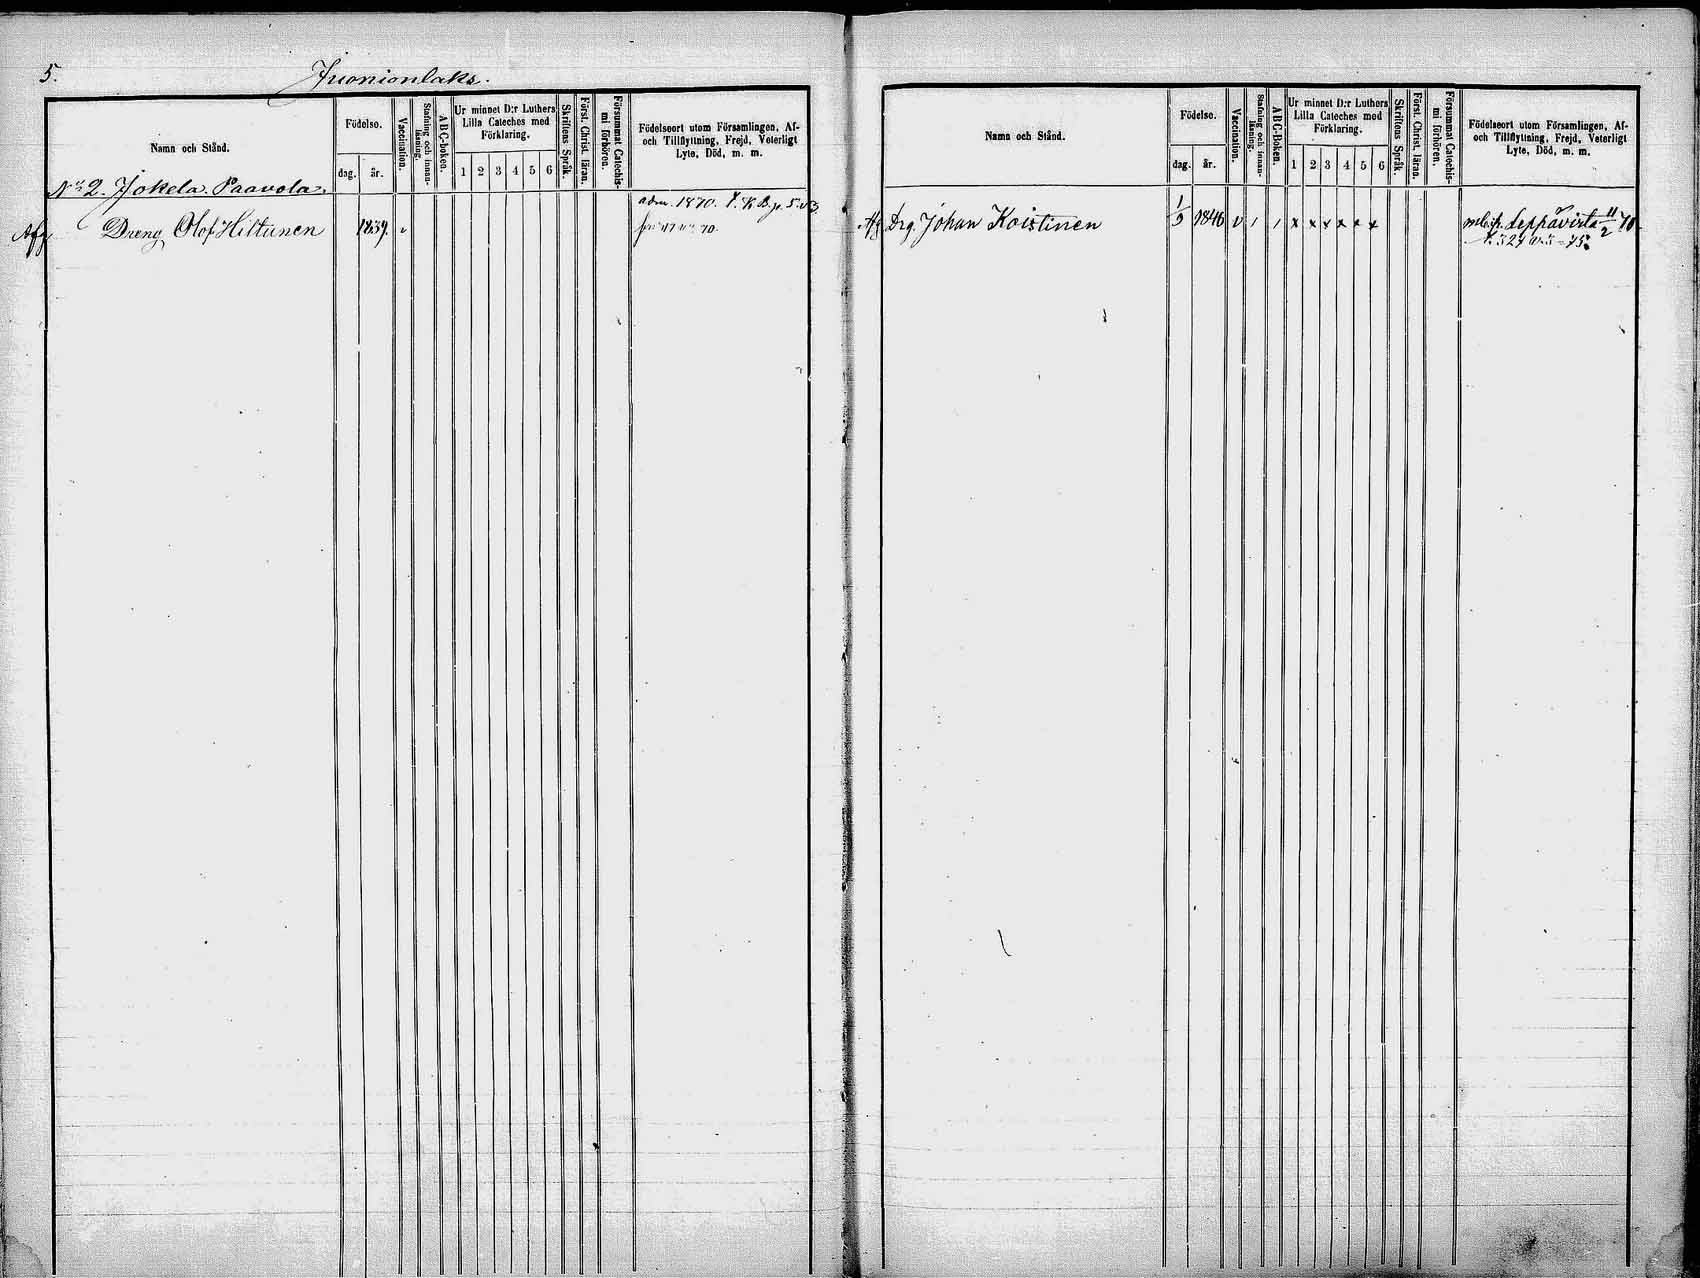 5.
Juonionlaks.
Namn och Stånd.
Födelse.
dag. år.
Vaccination.
Stafning och innan-
läsning.
A B C-boken.
Ur minnet D:r Luthers
Lilla Cateches med
Förklaring.
1 2 3 4 5 6
Skriftens Språk.
Först. Christ. läran.
Försummat Catechis-
mi förhören.
Födelseort utom Församlingen, Af-
och Tillflyttning, Frejd, Veterligt
Lyte, Död, m. m.
No 2. Jokela. Paavola.
adm. 1870. T. K. B. p. 5
Afg Dreng Olof Hiltunen 1839. v 70.
Namn och Stånd.
Födelse.
dag. år.
Vaccination.
Stafning och innan-
läsning.
A B C-Boken.
Ur minnet D:r Luthers
Lilla Cateches med
Förklaring.
1 2 3 4 5 6
Skriftens Språk.
Först. Christ. läran.
Försummat Catechis-
mi förhören.
Födelseort utom Församlingen, Af-
och Tillflyttning, Frejd, Veterligt
Lyte, Död, m. m.
Afg Drg. Johan Koistinen 1846 v / / x x x x x x Leppävirta 11/2